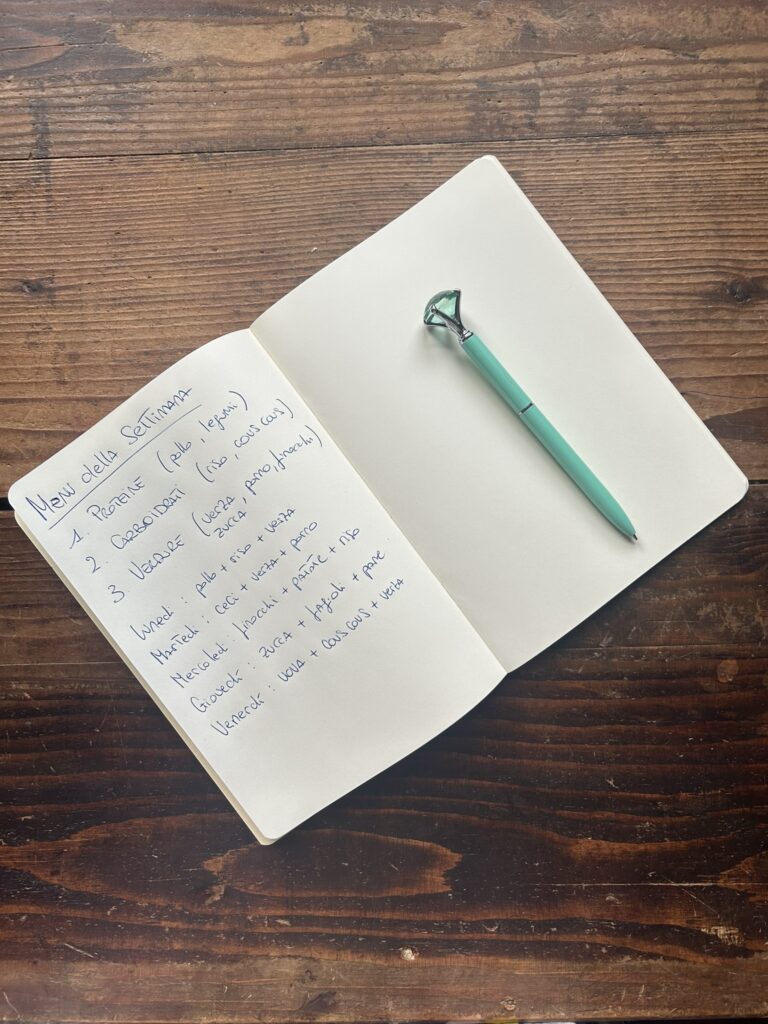 Menu della Settimana
1. PROTEINE (pollo, legumi)
2. CARBOIDRATI (riso, cous cous)
3 VERDURE (verza, porro, finocchi)
zucca
lunedì: pollo + riso + verza
Martedì: ceci + verza + porro
Mercoledì: finocchi + patate + riso
Giovedì: zucca + fagioli + pane
Venerdì: uova + cous cous + verza